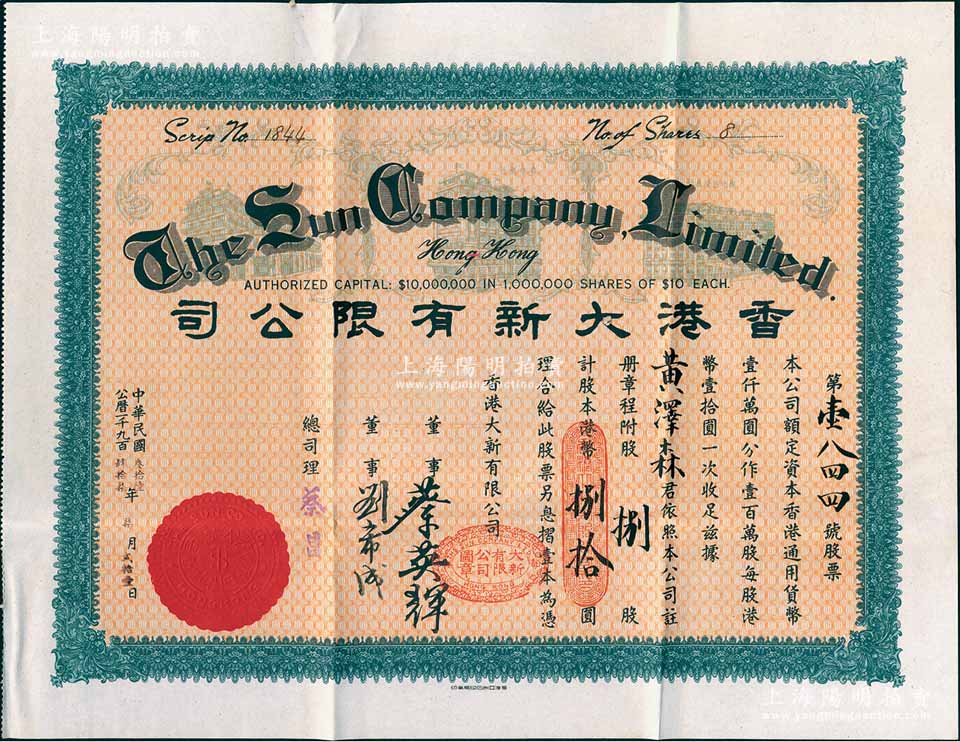 上海陽明拍賣
www.yangmingauction.com
Scrip No. 1844
No. of Shares 8
The Sun Company, Limited.
Hong Kong
AUTHORIZED CAPITAL: $10,000,000 IN 1,000,000 SHARES OF $10 EACH.
香港大新有限公司
第壹八四四號股票
本公司額定資本香港通用貨幣
壹仟萬圓分作壹百萬股每股港
幣壹拾圓一次收足茲據
黃澤森君依照本公司註
册章程附股 捌 股
計股本港幣 捌拾 圓
理合給此股票另息摺壹本為憑
香港大新有限公司
董事 蔡英輝
董事 劉希成
總司理 蔡昌
大新有限公司圖章
中華民國年月貳拾壹日
公曆一千九百
上海陽明拍賣
www.yangmingauction.com
上海陽明拍賣
www.yangmingauction.com